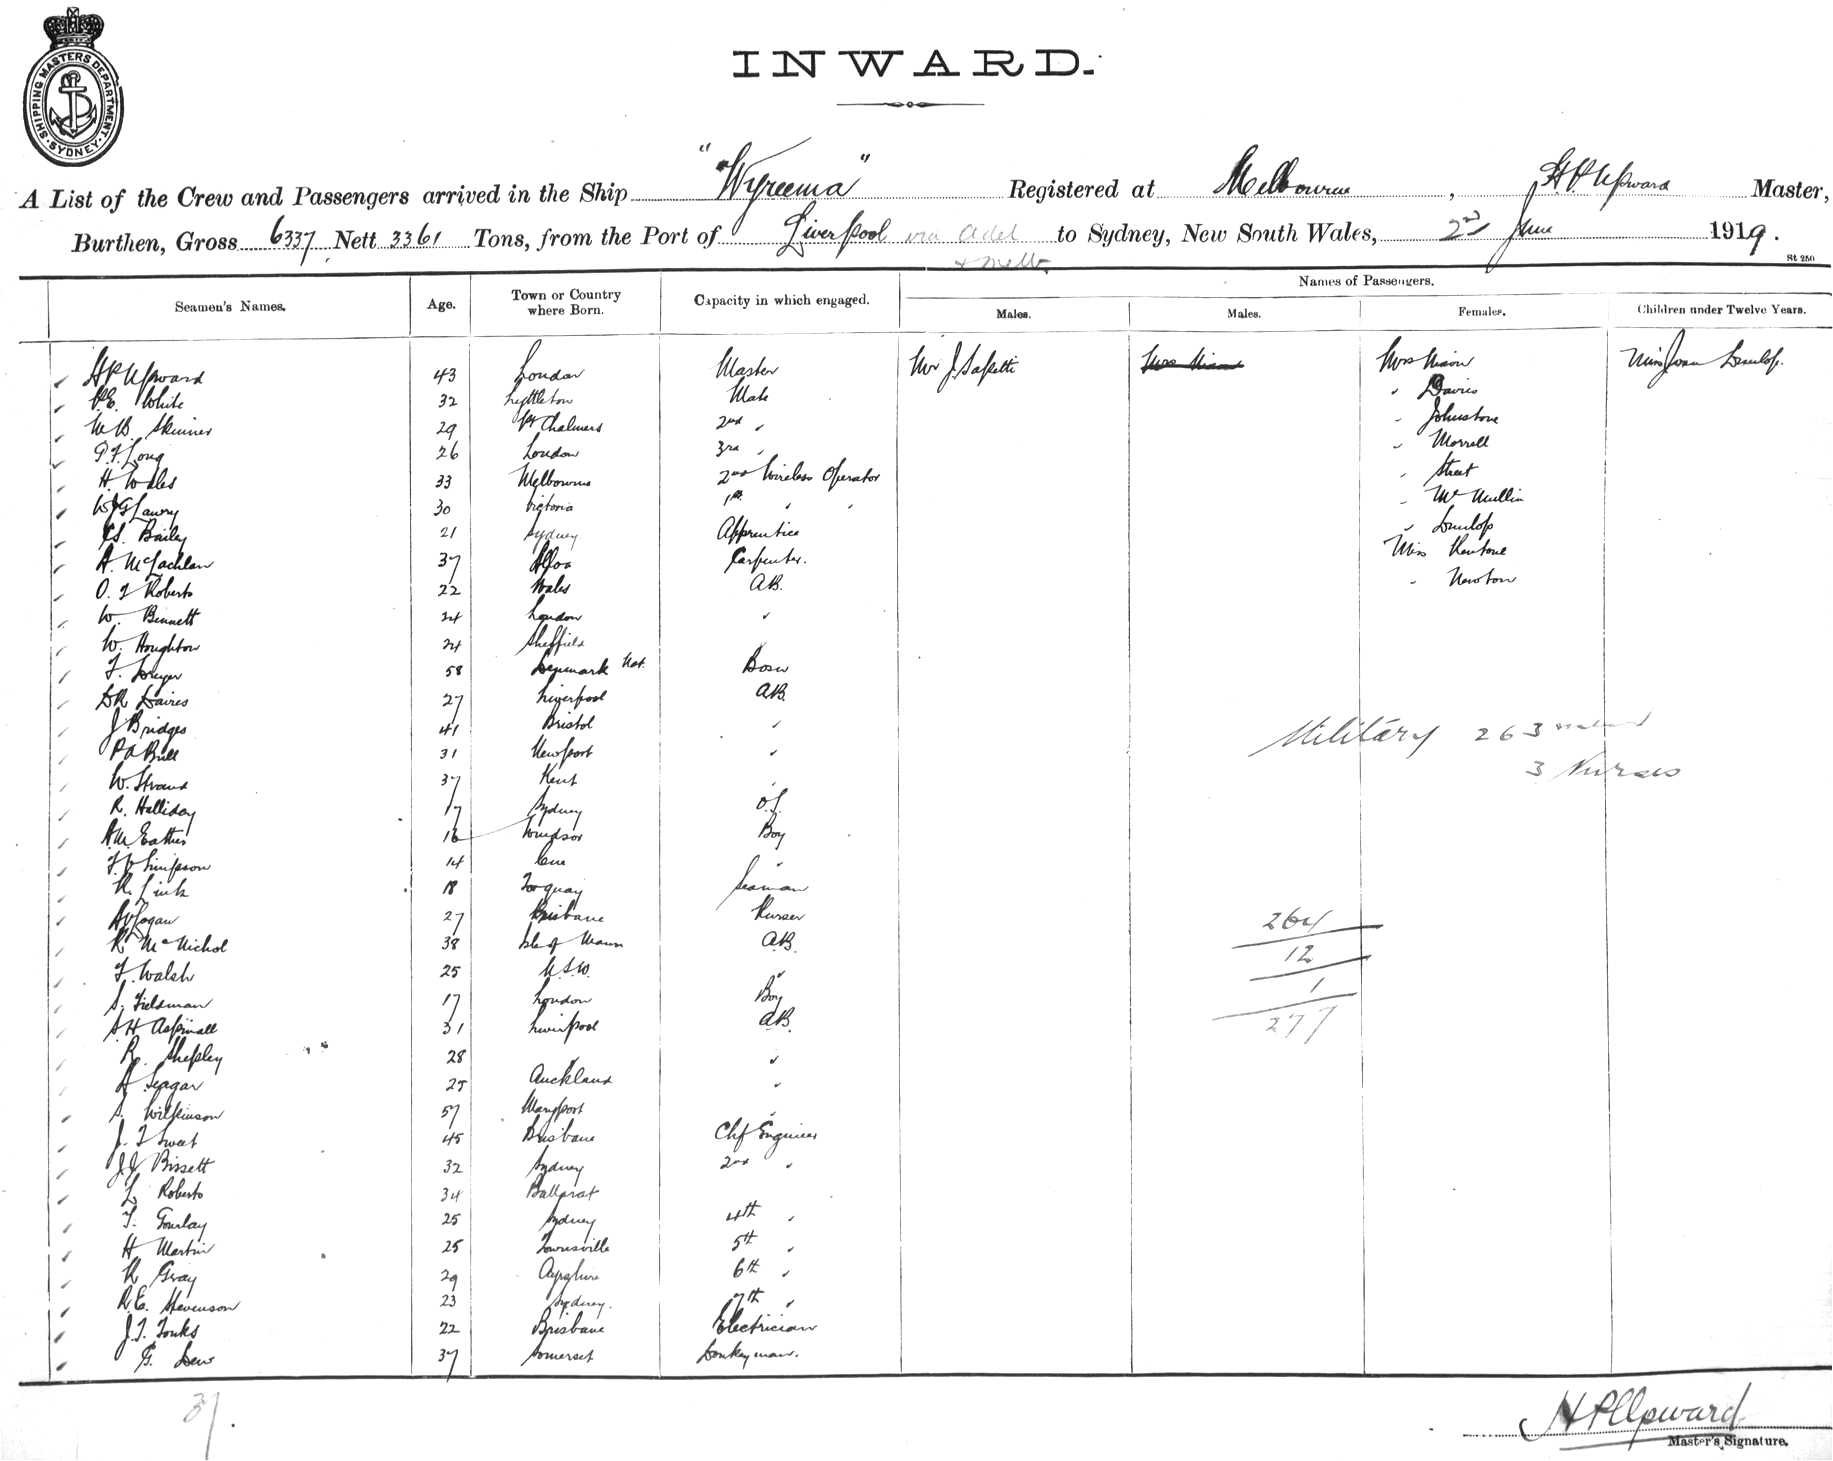 SHIPPING MASTERS DEPARTMENT. SYDNEY
INWARD.
A List of the Crew and Passengers arrived in the Ship "Wyreema" Registered at Melbourne, H P Upward Master,
Burthen, Gross 6337 Nett 3361 Tons, from the Port of Liverpool via Adel to Sydney, New South Wales, 2nd June 1919.
& Melb.
St 250
Names of Passengers.
Seamen's Names. Age. Town or Country where Born. Capacity in which engaged. Males. Males. Females. Children under Twelve Years.
H P Upward 43 London Master Mr J. Mrs Nixon Mrs Nixon Miss Joan Dunlop
White 32 Lyttleton Mate " Davies
Skinner 29 Pt Chalmers 2nd " " Johnstone
Long 26 London 3rd " " Morrell
H Wales 33 Melbourne 2nd Wireless Operator " Street
Lawry 30 Victoria 1st " " " McMullin
Bailey 21 Sydney Apprentice " Dunlop
A. McLachlan 37 Alloa Carpenter. Miss
O. J Roberts 22 Wales A.B. " Newton
W. Bennett 24 London "
W. Houghton 24 Sheffield
58 Denmark Nat. Bosn
Davies 27 Liverpool A.B.
J Bridges 41 Bristol "
Bull 31 Newport "
W. 37 Kent "
R. Halliday 17 Sydney O.S.
16 Windsor Boy
Simpson 14 "
18 Torquay Seaman
Logan 27 Brisbane Purser
R McNichol 38 Isle of Mann A.B.
F. Walsh 25 N.S.W. "
S. Fieldsman 17 London Boy
S. H Aspinall 31 Liverpool A.B.
R. Shepley 28 " "
A Seagar 25 Auckland "
S. Wilkinson 57 Maryport "
J. F Sweet 45 Brisbane Chf Engineer
Bissett 32 Sydney 2nd "
L Roberts 34 Ballarat
T. Gourlay 25 Sydney 4th "
H Martin 25 Townsville 5th "
R Gray 29 Ayrshire 6th "
R.E. Stevenson 23 Sydney. 7th "
J.T. Tonks 22 Brisbane Electrician
G. Dew 37 Somerset Donkeyman.
Military 263
3 Nurses
264
12
1
277
37.
H P Upward
Master's Signature.